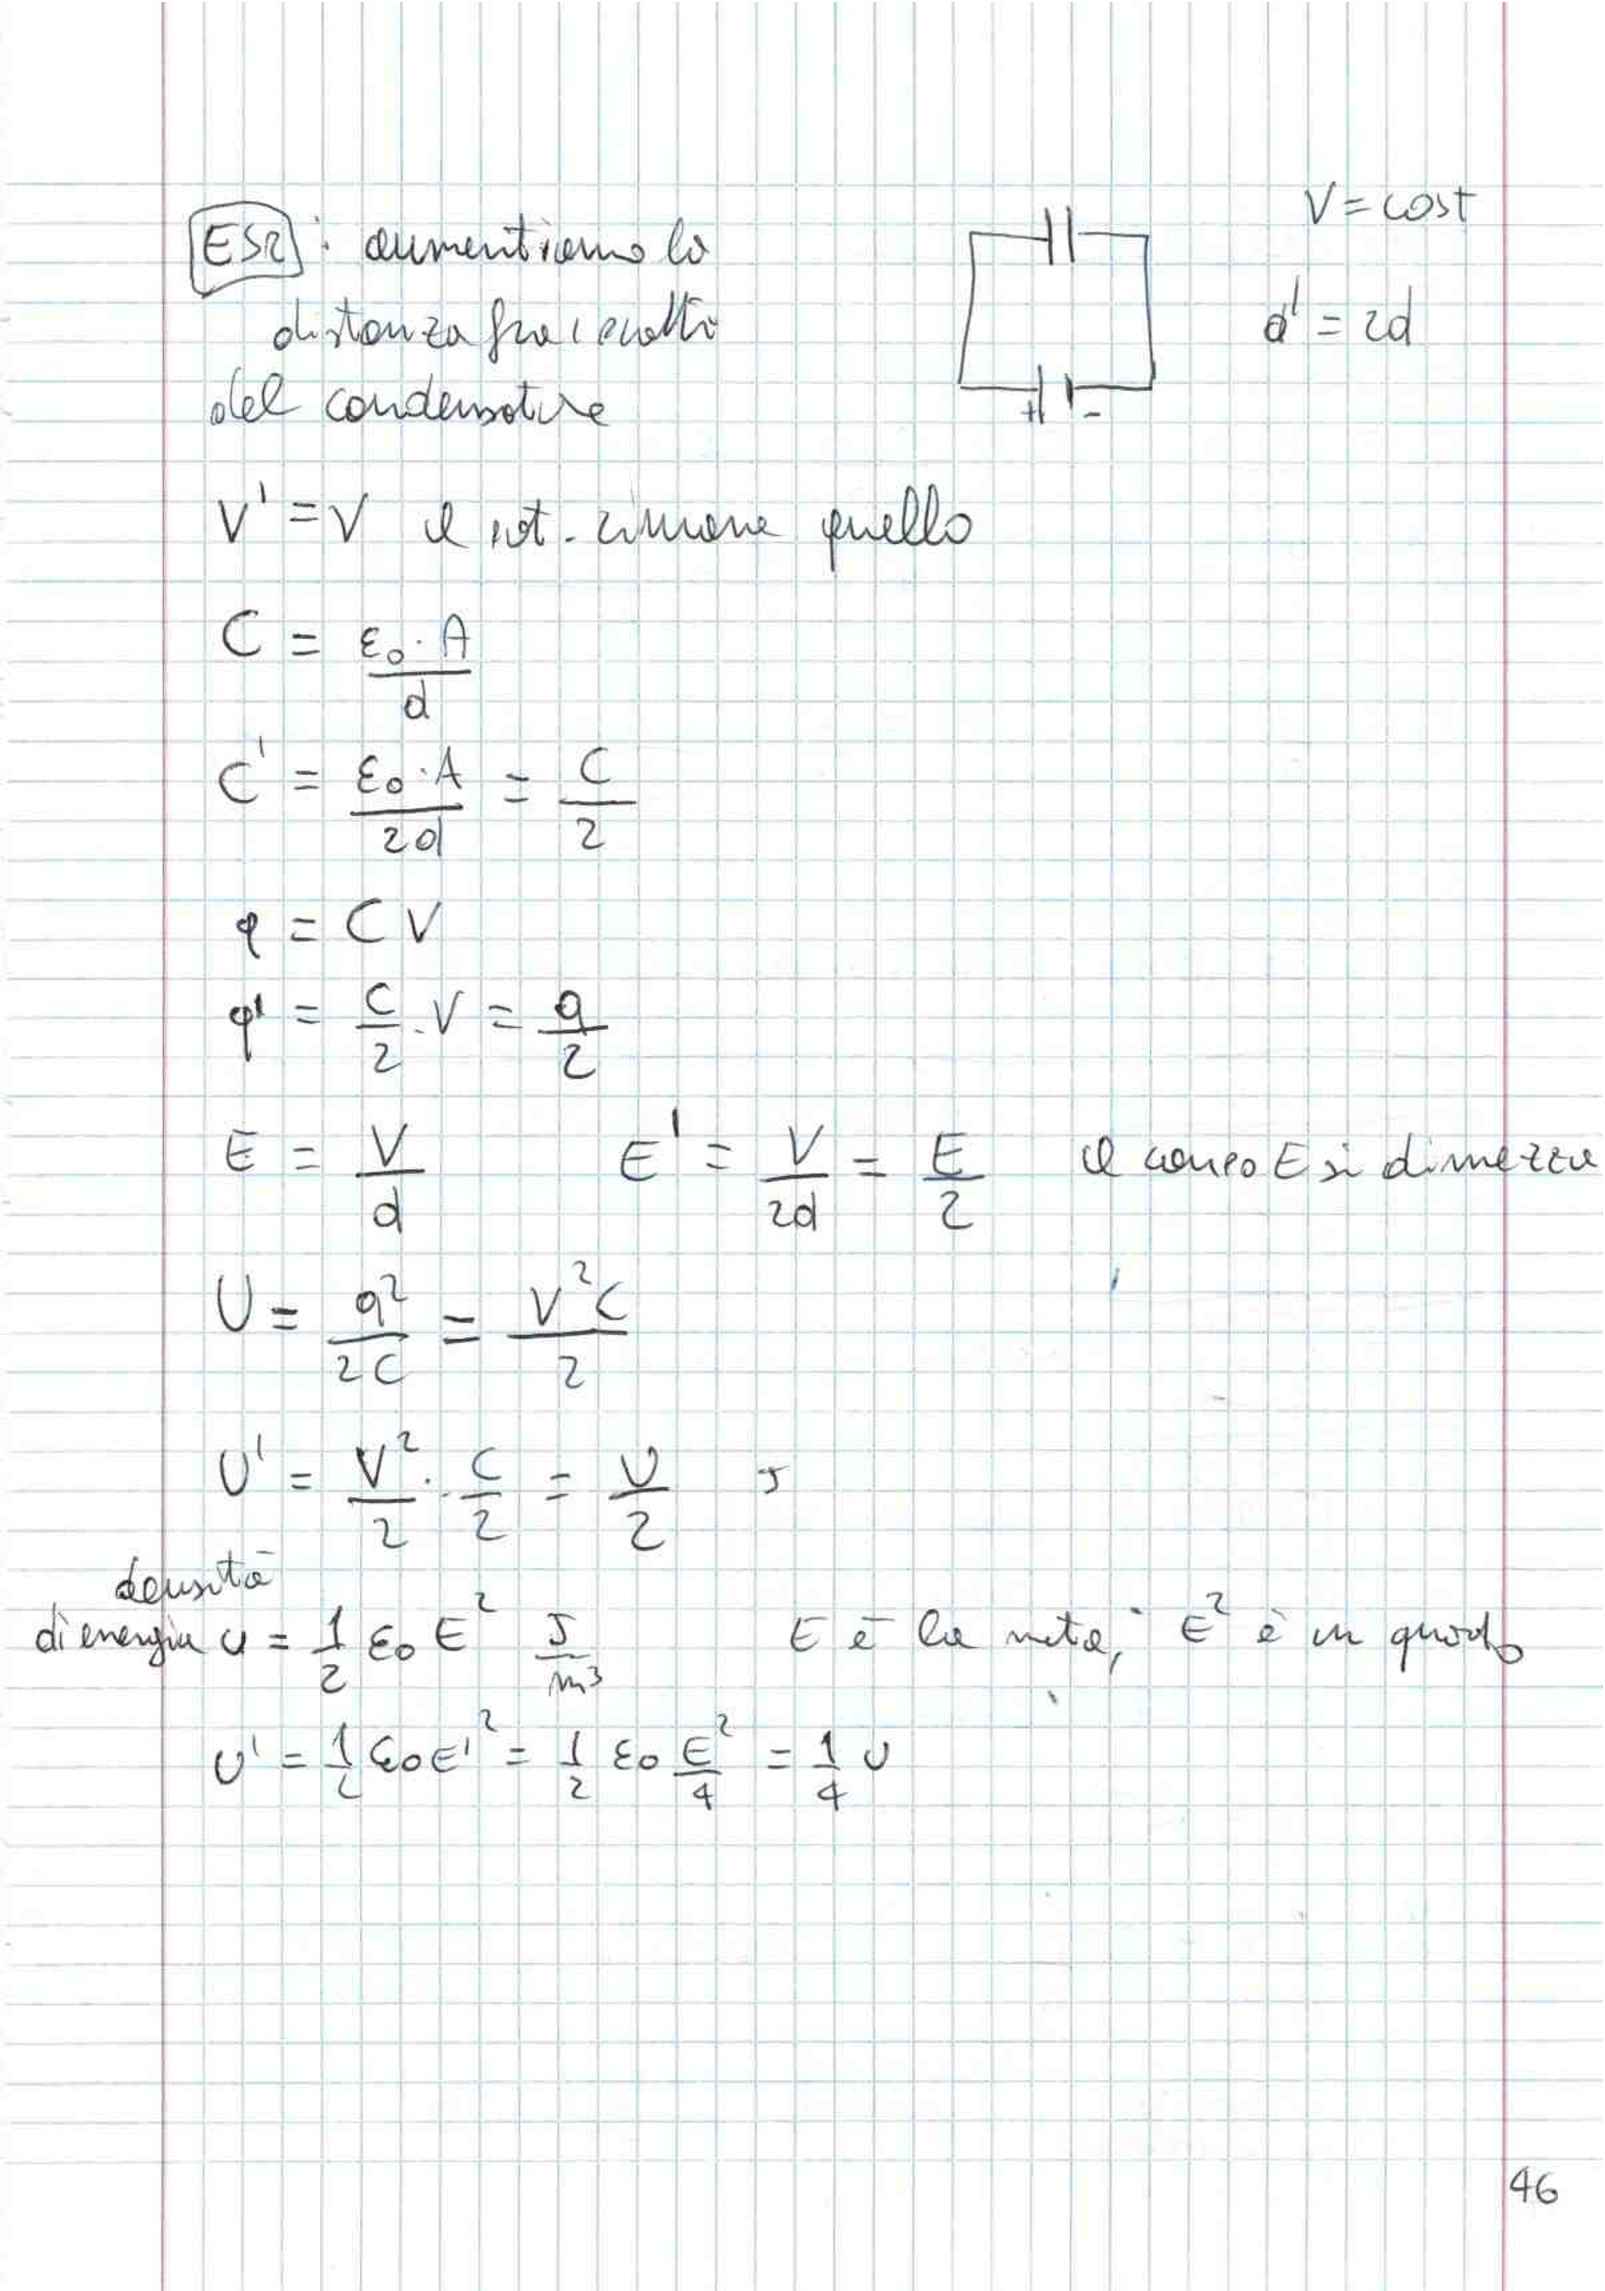 ES2: aumentiamo la
distanza fra i piatti
del condensatore
V = cost
d' = 2d
+ -
V' = V il pot. rimane quello
C = ε₀·A / d
C' = ε₀·A / 2d = C / 2
q = CV
q' = C/2 · V = q/2
E = V/d E' = V/2d = E/2 il campo E si dimezza
U = q²/2C = V²C/2
U' = V²/2 · C/2 = U/2 J
densità
di energia u = 1/2 ε₀E² J/m³ E è la metà, E² è un quarto
u' = 1/2 ε₀E'² = 1/2 ε₀ E²/4 = 1/4 u
46